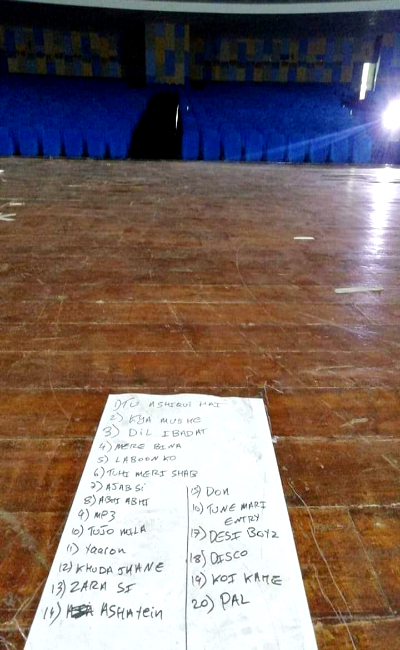 1) TU ASHIQUI HAI
2) KYA MUJHE
3) DIL IBADAT
4) MERE BINA
5) LABOON KO
6) TUHI MERI SHAB
7) AJAB SI
8) ABHI ABHI
9) MP3
10) TUJO MILA
11) Yaaron
12) KHUDA JHANE
13) ZARA SI
14) ASHATEIN
15) DON
16) TUNE MARI
ENTRY
17) DESI BOYZ
18) DISCO
19) KOI KAHE
20) PAL